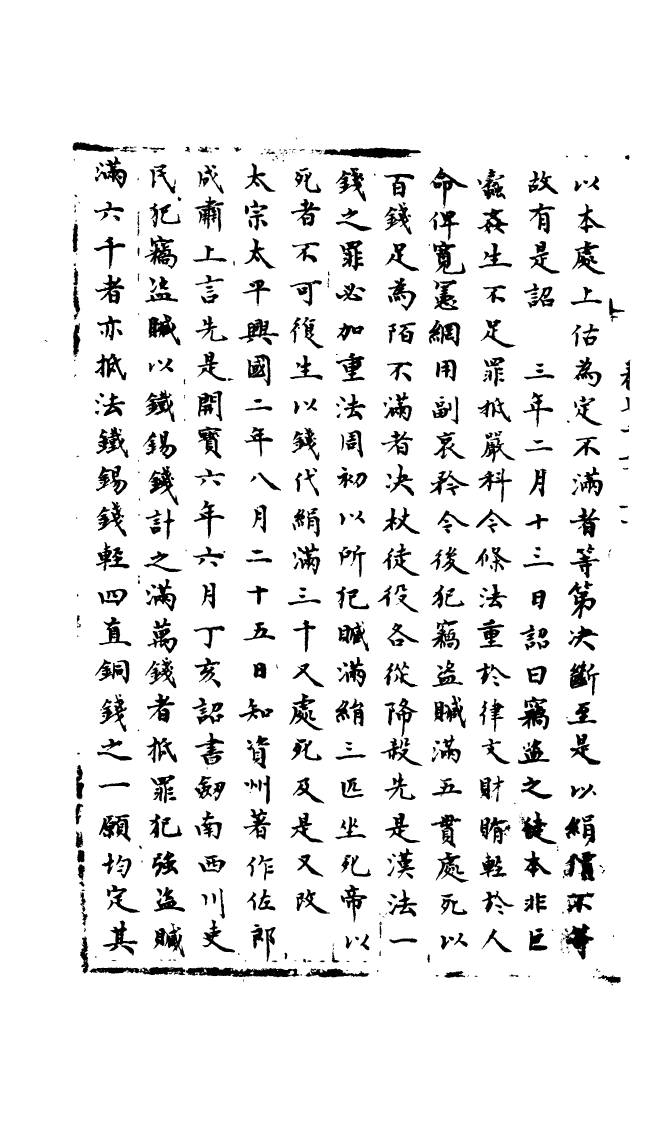 以本處上估為定不滿者等第决斷至是以絹價不等
故有是詔　三年二月十三日詔曰竊盗之徒本非巨
蠹姦生不足罪抵嚴科今條法重於律文財賄輕於人
命俾寬憲網用副哀矜今後犯竊盗贓滿五貫處死以
百錢足為陌不滿者决杖徒役各從降殺先是漢法一
錢之罪必加重法周初以所犯贓滿絹三匹坐死帝以
死者不可復生以錢代絹滿三千又處死及是又改
太宗太平興國二年八月二十五日知資州著作佐郎
成肅上言先是開寶六年六月丁亥詔書劒南西川吏
民犯竊盗贓以鐵錫錢計之滿萬錢者抵罪犯強盗贓
滿六千者亦抵法鐵錫錢輕四直銅錢之一願均定其